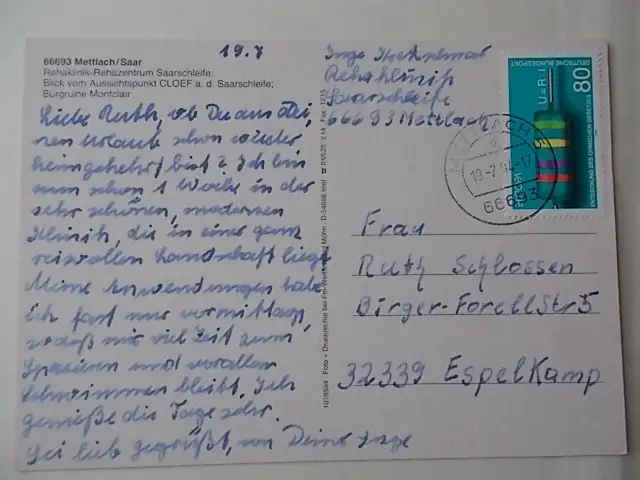 66693 Mettlach/Saar
Rehaklinik-Rehazentrum Saarschleife;
Blick vom Aussichtspunkt CLOEF a. d. Saarschleife;
Burgruine Montclair
19.7
Liebe Ruth, ob Du aus Dei
nen Urlaub schon wieder
heimgekehrt bist? Ich bin
nun schon 1 Woche in der
sehr schönen, modernen
Klinik, die in einer ganz
reizvollen Landschaft liegt
Meine Anwendungen habe
ich fast nur vormittag,
sodaß mir viel Zeit zum
Spazieren und vorallen
Schwimmen bleibt. Ich
genieße die Tage sehr.
Sei lieb gegrüßt, von Deine Inge
Inge
Rehaklinik
Saarschleife
66693 Mettlach
DEUTSCHE BUNDESPOST
80
U=R·I
EUROPA
ENTDECKUNG DES OHMSCHEN GESETZES
METTLACH
19-7.94-17
66693
Frau
Ruth Schlossen
Birger-Forell Str 5
32339 Espelkamp